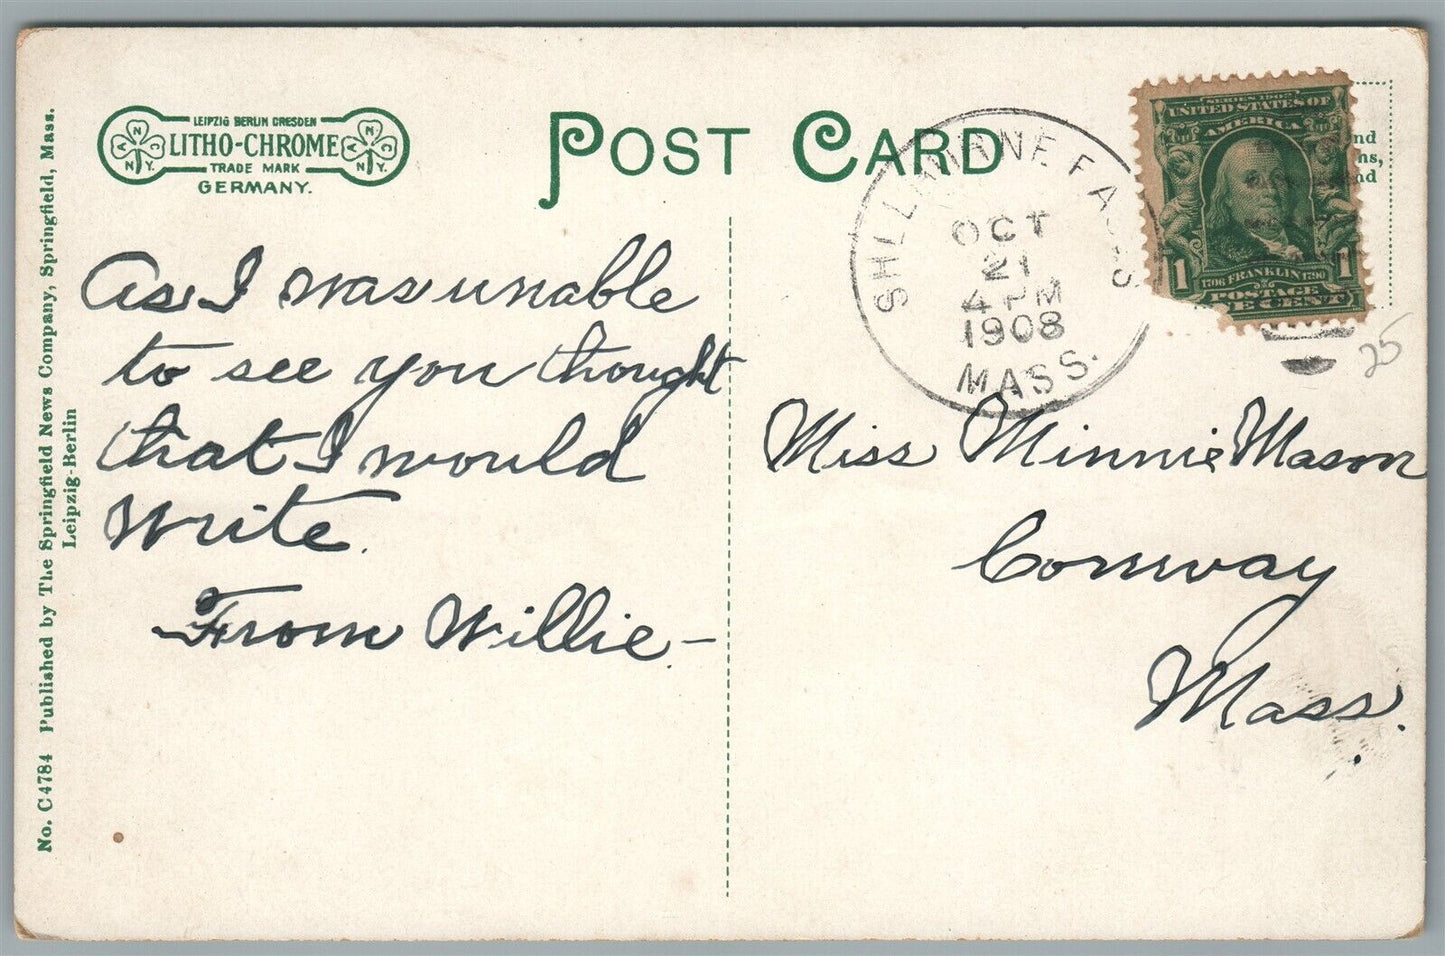 No. C4784 Published by The Springfield News Company, Springfield, Mass.
Leipzig-Berlin
LEIPZIG BERLIN DRESDEN
LITHO-CHROME
TRADE MARK
GERMANY.
ANC N.Y.
ANC N.Y.
POST CARD
As I was unable
to see you thought
that I would
write.
From Willie -
FALLS
OCT
21
4 PM
1908
MASS.
SERIES 1902
UNITED STATES OF
AMERICA
1 FRANKLIN 1
1706 1790
POSTAGE
E CENT
nd
ns,
nd
25
Miss Minnie Mason
Conway
Mass.